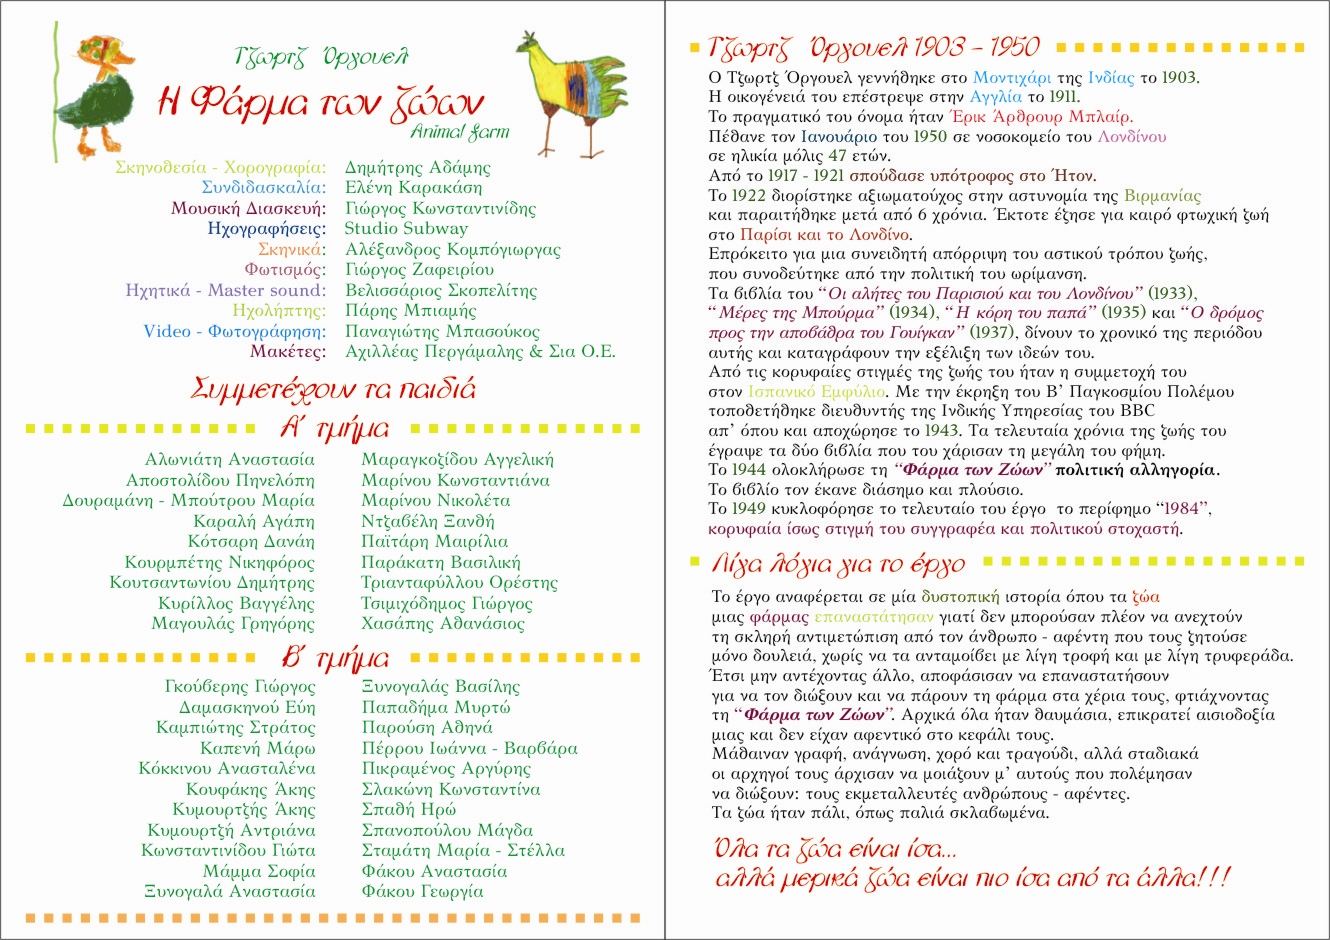 Τζωρτζ Όργουελ
Η Φάρμα των ζώων
Animal farm
Σκηνοθεσία - Χορογραφία: Δημήτρης Αδάμης
Συνδιδασκαλία: Ελένη Καρακάση
Μουσική Διασκευή: Γιώργος Κωνσταντινίδης
Ηχογραφήσεις: Studio Subway
Σκηνικά: Αλέξανδρος Κομπόγιωργας
Φωτισμός: Γιώργος Ζαφειρίου
Ηχητικά - Master sound: Βελισσάριος Σκοπελίτης
Ηχολήπτης: Πάρης Μπιαμής
Video - Φωτογράφηση: Παναγιώτης Μπασούκος
Μακέτες: Αχιλλέας Περγάμαλης & Σια Ο.Ε.
Συμμετέχουν τα παιδιά
Α΄ τμήμα
Αλωνιάτη Αναστασία Μαραγκοζίδου Αγγελική
Αποστολίδου Πηνελόπη Μαρίνου Κωνσταντιάνα
Δουραμάνη - Μπούτρου Μαρία Μαρίνου Νικολέτα
Καραλή Αγάπη Ντζαβέλη Ξανθή
Κότσαρη Δανάη Παϊτάρη Μαιρίλια
Κουρμπέτης Νικηφόρος Παράκατη Βασιλική
Κουτσαντωνίου Δημήτρης Τριανταφύλλου Ορέστης
Κυρίλλος Βαγγέλης Τσιμιχόδημος Γιώργος
Μαγουλάς Γρηγόρης Χασάπης Αθανάσιος
Β΄ τμήμα
Γκούβερης Γιώργος Ξυνογαλάς Βασίλης
Δαμασκηνού Εύη Παπαδήμα Μυρτώ
Καμπιώτης Στράτος Παρούση Αθηνά
Καπενή Μάρω Πέρρου Ιωάννα - Βαρβάρα
Κόκκινου Ανασταλένα Πικραμένος Αργύρης
Κουφάκης Άκης Σλακώνη Κωνσταντίνα
Κυμουρτζής Άκης Σπαθή Ηρώ
Κυμουρτζή Αντριάνα Σπανοπούλου Μάγδα
Κωνσταντινίδου Γιώτα Σταμάτη Μαρία - Στέλλα
Μάμμα Σοφία Φάκου Αναστασία
Ξυνογαλά Αναστασία Φάκου Γεωργία
Τζωρτζ Όργουελ 1903 – 1950
Ο Τζωρτζ Όργουελ γεννήθηκε στο Μοντιχάρι της Ινδίας το 1903.
Η οικογένειά του επέστρεψε στην Αγγλία το 1911.
Το πραγματικό του όνομα ήταν Έρικ Άρθρουρ Μπλαίρ.
Πέθανε τον Ιανουάριο του 1950 σε νοσοκομείο του Λονδίνου
σε ηλικία μόλις 47 ετών.
Από το 1917 - 1921 σπούδασε υπότροφος στο Ήτον.
Το 1922 διορίστηκε αξιωματούχος στην αστυνομία της Βιρμανίας
και παραιτήθηκε μετά από 6 χρόνια. Έκτοτε έζησε για καιρό φτωχική ζωή
στο Παρίσι και το Λονδίνο.
Επρόκειτο για μια συνειδητή απόρριψη του αστικού τρόπου ζωής,
που συνοδεύτηκε από την πολιτική του ωρίμανση.
Τα βιβλία του “Οι αλήτες του Παρισιού και του Λονδίνου” (1933),
“Μέρες της Μπούρμα” (1934), “Η κόρη του παπά” (1935) και “Ο δρόμος
προς την αποβάθρα του Γουίγκαν” (1937), δίνουν το χρονικό της περιόδου
αυτής και καταγράφουν την εξέλιξη των ιδεών του.
Από τις κορυφαίες στιγμές της ζωής του ήταν η συμμετοχή του
στον Ισπανικό Εμφύλιο. Με την έκρηξη του Β’ Παγκοσμίου Πολέμου
τοποθετήθηκε διευθυντής της Ινδικής Υπηρεσίας του BBC
απ’ όπου και αποχώρησε το 1943. Τα τελευταία χρόνια της ζωής του
έγραψε τα δύο βιβλία που του χάρισαν τη μεγάλη του φήμη.
Το 1944 ολοκλήρωσε τη “Φάρμα των Ζώων” πολιτική αλληγορία.
Το βιβλίο τον έκανε διάσημο και πλούσιο.
Το 1949 κυκλοφόρησε το τελευταίο του έργο το περίφημο “1984”,
κορυφαία ίσως στιγμή του συγγραφέα και πολιτικού στοχαστή.
Λίγα λόγια για το έργο
Το έργο αναφέρεται σε μία δυστοπική ιστορία όπου τα ζώα
μιας φάρμας επαναστάτησαν γιατί δεν μπορούσαν πλέον να ανεχτούν
τη σκληρή αντιμετώπιση από τον άνθρωπο - αφέντη που τους ζητούσε
μόνο δουλειά, χωρίς να τα ανταμοίβει με λίγη τροφή και με λίγη τρυφεράδα.
Έτσι μην αντέχοντας άλλο, αποφάσισαν να επαναστατήσουν
για να τον διώξουν και να πάρουν τη φάρμα στα χέρια τους, φτιάχνοντας
τη “Φάρμα των Ζώων”. Αρχικά όλα ήταν θαυμάσια, επικρατεί αισιοδοξία
μιας και δεν είχαν αφεντικό στο κεφάλι τους.
Μάθαιναν γραφή, ανάγνωση, χορό και τραγούδι, αλλά σταδιακά
οι αρχηγοί τους άρχισαν να μοιάζουν μ’ αυτούς που πολέμησαν
να διώξουν: τους εκμεταλλευτές ανθρώπους - αφέντες.
Τα ζώα ήταν πάλι, όπως παλιά σκλαβωμένα.
Όλα τα ζώα είναι ίσα...
αλλά μερικά ζώα είναι πιο ίσα από τα άλλα!!!